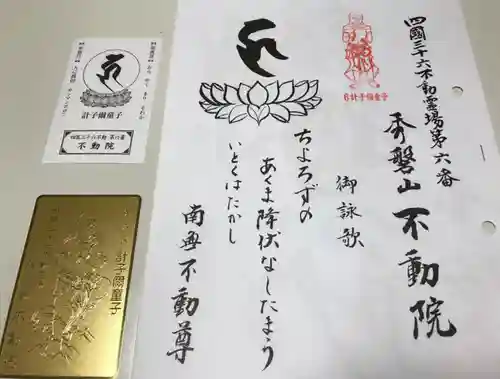 四國三十六不動霊場第六番
秀磐山 不動院
御詠歌
ちよろずの
あくま降伏なしたまう
いとくはたかし
南無不動尊
6計子爾童子
計子爾童子
四国三十六不動 第六番
不動院
計子爾童子